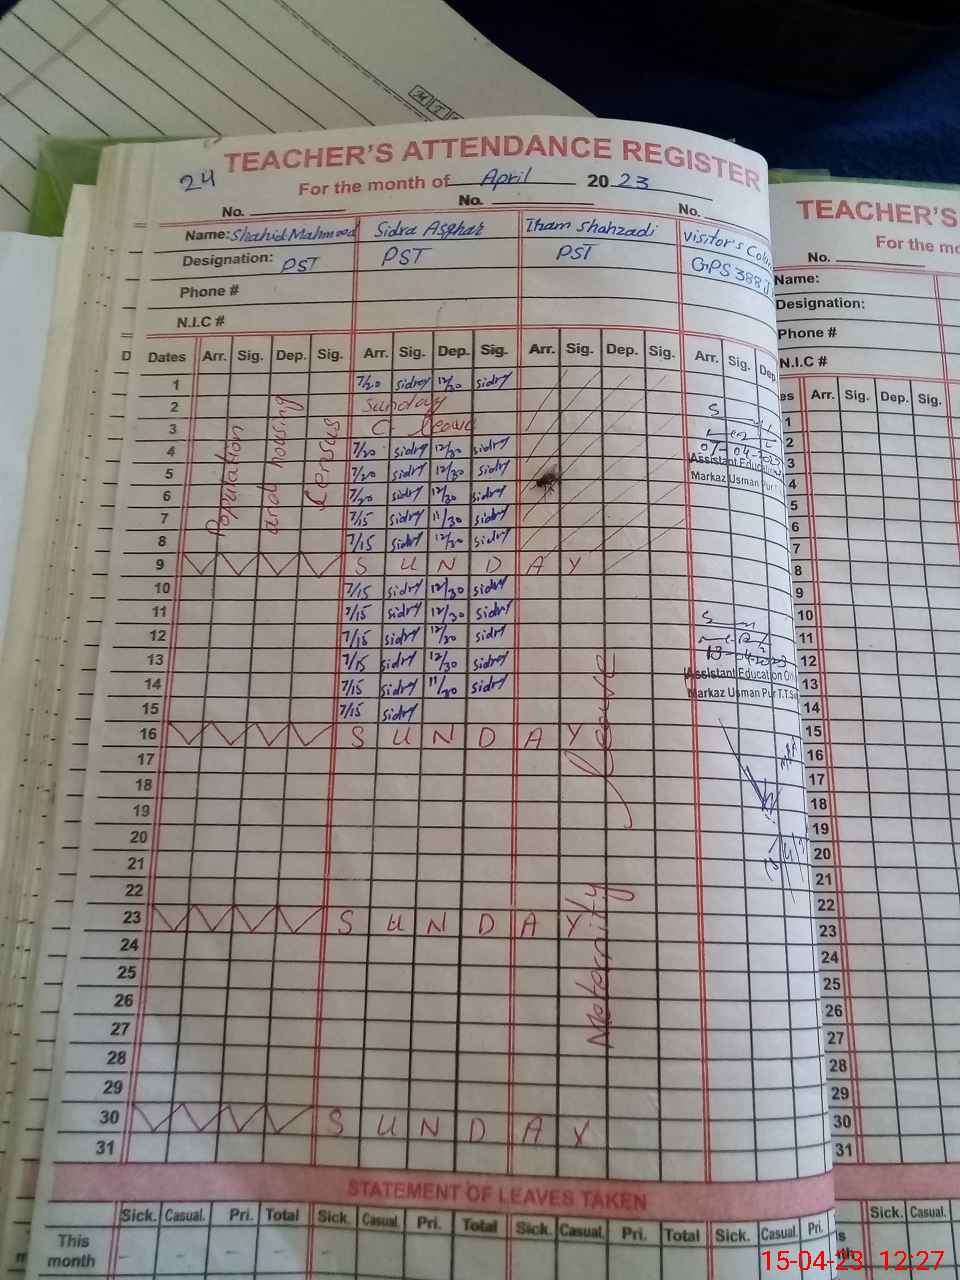 24
TEACHER'S ATTENDANCE REGISTER
For the month of April 2023
No. No. No.
Name: Shahid Mahmood Sidra Asghar Iram Shahzadi Visitor's
Designation: PST PST PST GPS 388
Phone #
N.I.C #
Dates Arr. Sig. Dep. Sig. Arr. Sig. Dep. Sig. Arr. Sig. Dep. Sig. Arr. Sig. Dep.
Population and housing Census
1 7/20 sidra 12/30 sidra
2 Sunday
3 C. leave
4 7/20 sidra 12/30 sidra
5 7/20 sidra 12/30 sidra
6 7/20 sidra 12/30 sidra
7 7/15 sidra 11/30 sidra
8 7/15 sidra 12/30 sidra
9 S U N D A Y
10 7/15 sidra 12/30 sidra
11 7/15 sidra 12/30 sidra
12 7/15 sidra 12/30 sidra
13 7/15 sidra 12/30 sidra
14 7/15 sidra 11/30 sidra
15 7/15 sidra
16 S U N D A Y
17
18
19
20
21
22
23 S U N D A Y
24
25
26
27
28
29
30 S U N D A Y
31
Maternity Leave
07-04-2023
Assistant Education
Markaz Usman Pur
13-04-2023
Assistant Education
Markaz Usman Pur T.T.
STATEMENT OF LEAVES TAKEN
Sick. Casual. Pri. Total Sick. Casual. Pri. Total Sick. Casual. Pri. Total Sick. Casual. Pri.
This month
TEACHER'S
For the
No.
Name:
Designation:
Phone #
N.I.C #
Arr. Sig. Dep. Sig.
1
2
3
4
5
6
7
8
9
10
11
12
13
14
15
16
17
18
19
20
21
22
23
24
25
26
27
28
29
30
31
Sick. Casual.
15-04-23 12:27